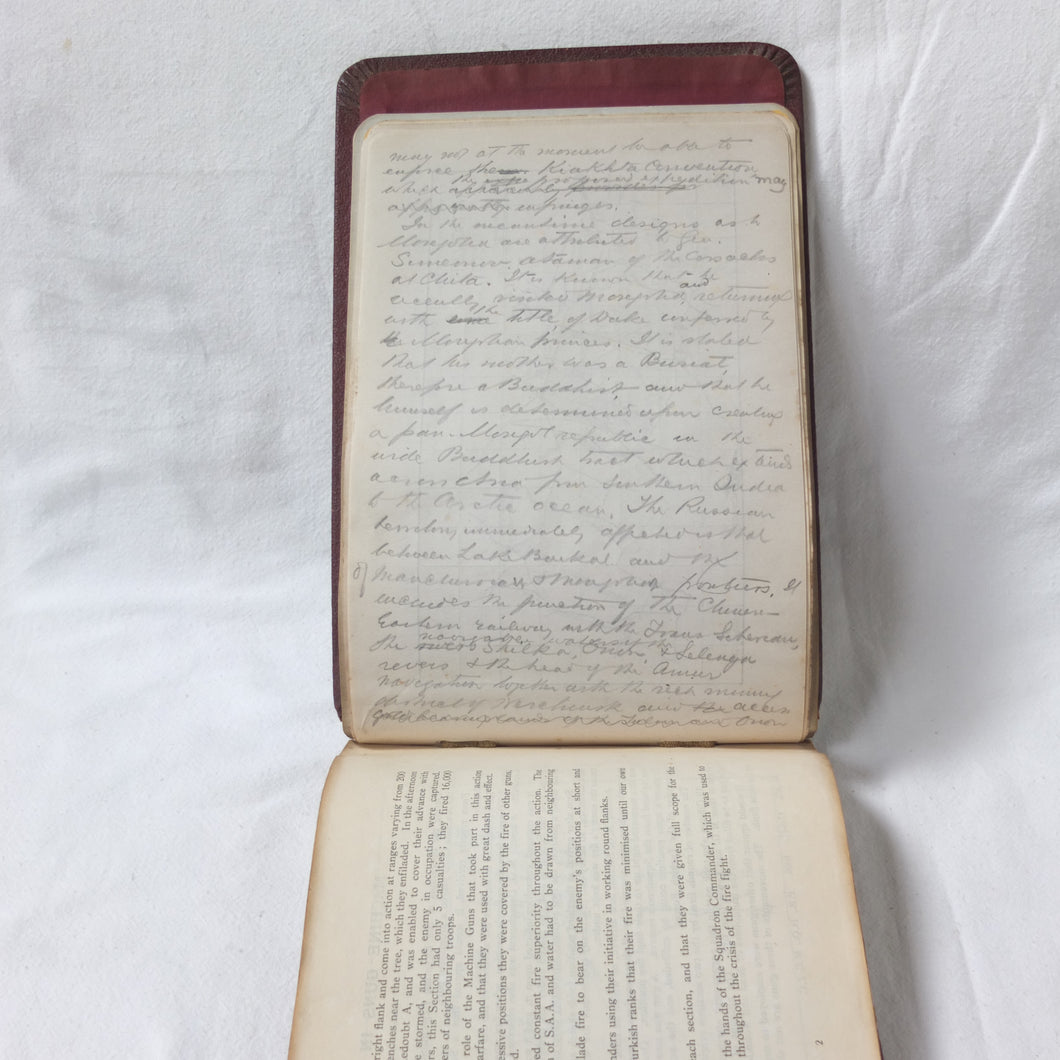 may not at the moment be able to
enforce the Kiakhta Convention
which apparently the proposed expedition may
infringes.
In the meantime designs as to
Mongolia are attributed to Gen.
Simeonov ataman of the Cossacks
at Chita. It is known that he
visited Mongolia, and returned
with the title of Duke conferred by
the Mongolian princes. It is stated
that his mother was a Buriat,
therefore a Buddhist, and that he
himself is determined upon creating
a pan-Mongol republic in the
wide Buddhist tract which extends
across Asia from Southern India
to the Arctic ocean. The Russian
territory immediately affected is that
between Lake Baikal and the
Manchurian & Mongolian frontiers. It
includes the junction of the Chinese
Eastern railway with the Trans Siberian,
the navigable waters of the Shilka, Onon, & Selenga
rivers & the head of the Amur
navigation together with the rich mining
district of Nerchinsk and
gold bearing of the and Onon
right flank and come into action at ranges varying from 200
nches near the tree, which they enfiladed. In the afternoon
edoubt A, and was enabled to cover their advance with
e stormed, and the enemy in occupation were captured.
rs, this Section had only 5 casualties; they fired 16,000
ers of neighbouring troops.
role of the Machine Guns that took part in this action
arfare, and that they were used with great dash and effect.
essive positions they were covered by the fire of other guns,
d.
ed constant fire superiority throughout the action. The
n of S.A.A. and water had to be drawn from neighbouring
lade fire to bear on the enemy's positions at short and
nders using their initiative in working round flanks.
urkish ranks that their fire was minimised until our own
each section, and that they were given full scope for the
the hands of the Squadron Commander, which was used to
throughout the crisis of the fire fight.
2